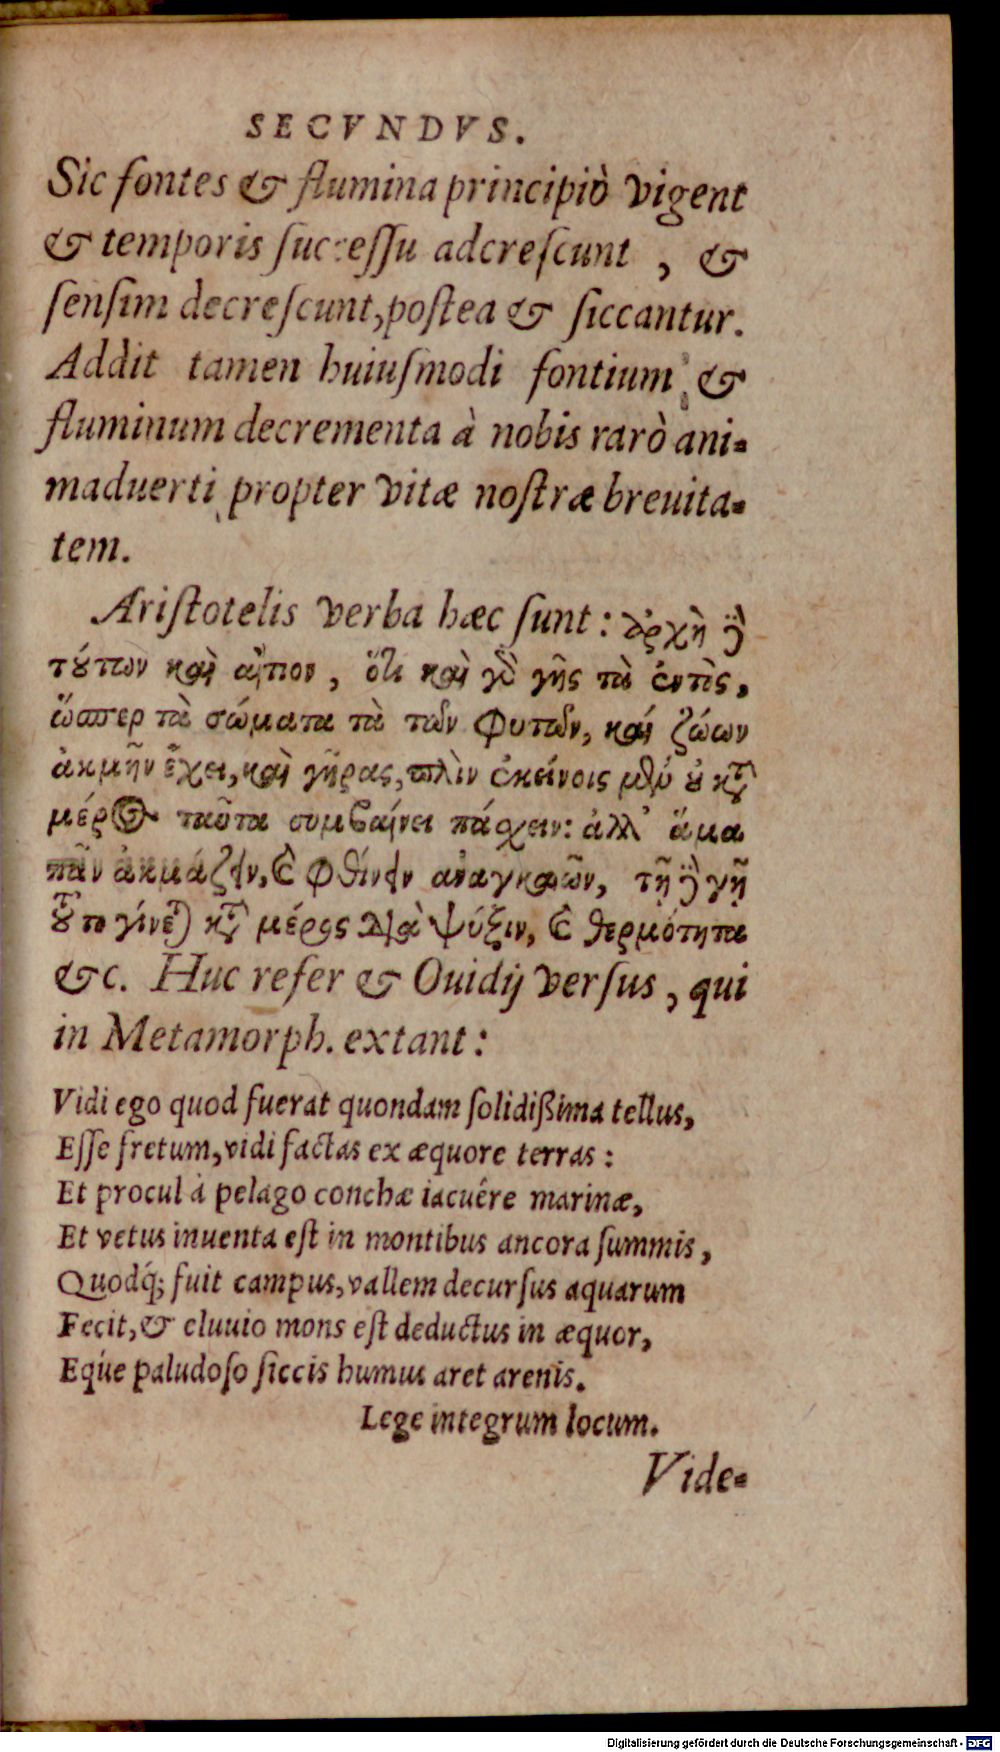 SECVNDVS.
Sic fontes & flumina principiò vigent
& temporis ſucceſſu adcreſcunt , &
ſenſim decreſcunt, poſtea & ſiccantur.
Addit tamen huiuſmodi fontium, &
fluminum decrementa à nobis rarò ani-
maduerti propter vitæ noſtræ breuita-
tem.
Ariſtotelis verba hæc ſunt: ἀρχὴ δὲ
τούτων καὶ αἴτιον, ὅτι καὶ τῆς γῆς τὰ ἐντὸς,
ὥσπερ τὰ σώματα τὰ τῶν φυτῶν, καὶ ζώων
ἀκμὴν ἔχει, καὶ γῆρας, πλὴν ἐκείνοις μὲν οὐ κατὰ
μέρος ταῦτα συμβαίνει πάσχειν: ἀλλ' ἅμα
πᾶν ἀκμάζειν, καὶ φθίνειν ἀναγκαῖον, τῇ δὲ γῇ
τοῦτο γίνεται κατὰ μέρος διὰ ψύξιν, καὶ θερμότητα
&c. Huc refer & Ouidij verſus, qui
in Metamorph. extant:
Vidi ego quod fuerat quondam ſolidißima tellus,
Eſſe fretum, vidi factas ex æquore terras:
Et procul à pelago conchæ iacuêre marinæ,
Et vetus inuenta eſt in montibus ancora ſummis,
Quodq́; fuit campus, vallem decurſus aquarum
Fecit, & eluuio mons eſt deductus in æquor,
Eq́ue paludoſo ſiccis humus aret arenis.
Lege integrum locum.
Vide-
Digitalisierung gefördert durch die Deutsche Forschungsgemeinschaft - DFG